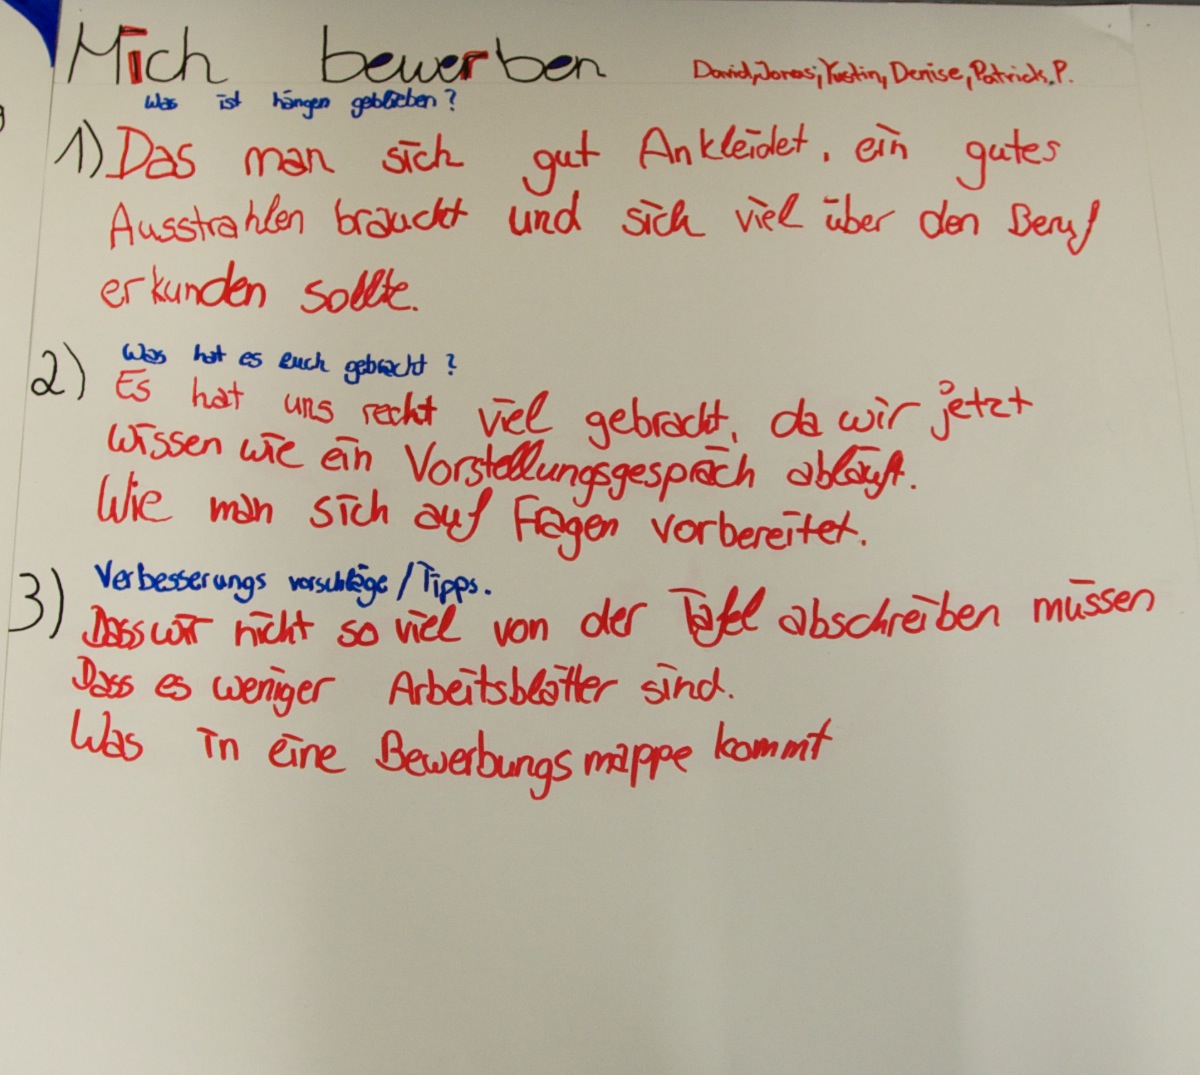 Mich bewerben
David, Jonas, Yustin, Denise, Patrick.P.
Was ist hängen geblieben?
1) Das man sich gut Ankleidet, ein gutes
Ausstrahlen braucht und sich viel über den Beruf
erkunden sollte.
2) Was hat es euch gebracht?
Es hat uns recht viel gebracht, da wir jetzt
wissen wie ein Vorstellungsgespräch abläuft.
Wie man sich auf Fragen vorbereitet.
3) Verbesserungs vorschläge/Tipps.
Dass wir nicht so viel von der Tafel abschreiben müssen
Dass es weniger Arbeitsblätter sind.
Was in eine Bewerbungsmappe kommt